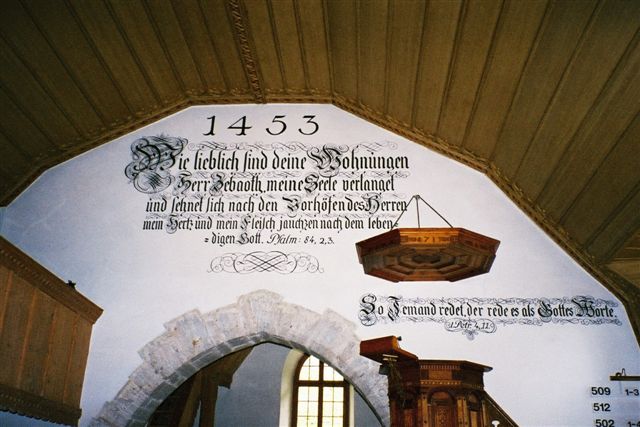 1453
Wie lieblich sind deine Wohnungen
Herr Zebaoth, meine Seele verlanget
und sehnet sich nach den Vorhöfen des Herren
mein Hertz und mein Fleisch jauchzen nach dem leben-
digen Gott. Psalm: 84, 2,3.
So Jemand redet, der rede es als Gottes Worte.
1. Petr. 4,11.
509 1-3
512
502 1-